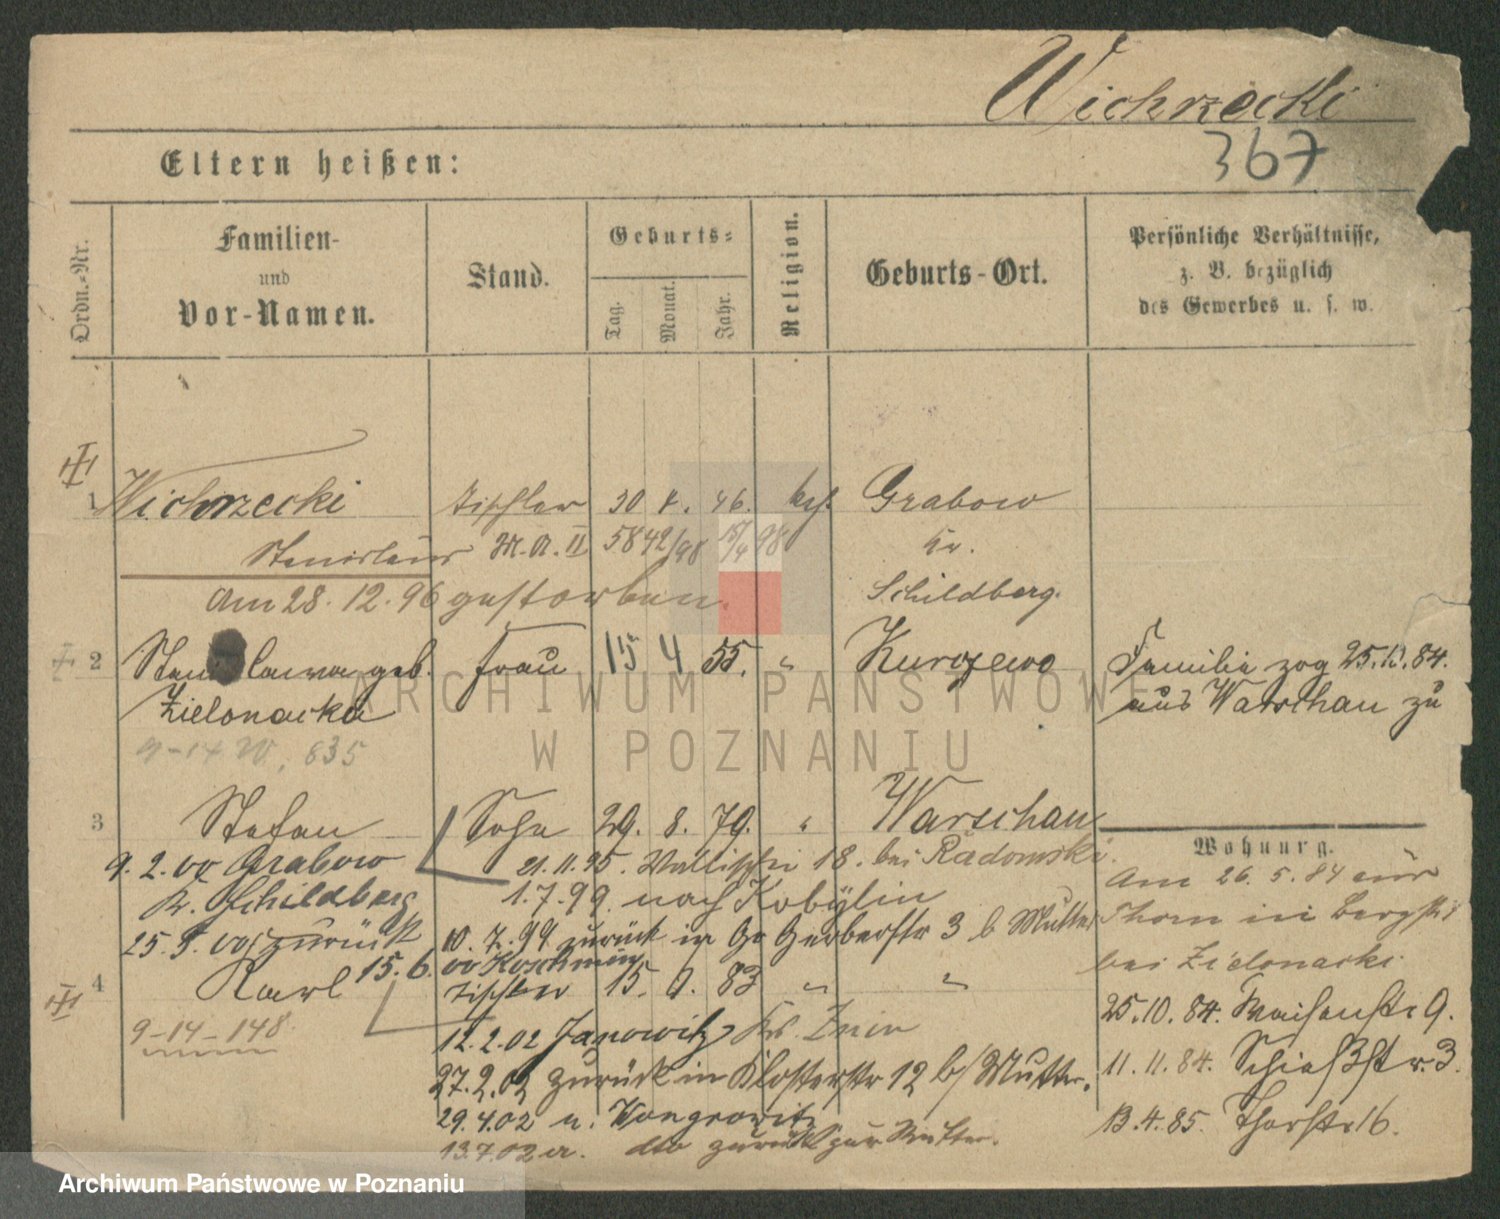 Wichrzecki
367
Eltern heißen:
Ordn.-Nr.
Familien-
und
Vor-Namen.
Stand.
Geburts-
Tag.
Monat.
Jahr.
Religion.
Geburts-Ort.
Persönliche Verhältnisse,
z. B. bezüglich
des Gewerbes u. s. w.
1 Wichrzecki Tischler 30 4. 46. kath. Grabow
Stanislaus M. A. II 5842/98 15/4 98 Kr.
am 28. 12. 96 gestorben. Schildberg.
2 Stanislawa geb. Frau 15 4 55. " Kurojewo Familie zog 25.10.84.
Zielonacka aus Warschau zu
9-14 W. 835
3 Stefan Sohn 29. 8. 79. " Warschau
Wohnung.
9. 2. 00 Grabow 21. 11. 95. Wallischei 18. bei Radomski.
Am 26. 5. 84 aus
K. Schildberg 1. 7. 99. nach Kobylin
Thorn in Bergstr
25. 5. 00 zurück 10. 7. 99 zurück in Gr Gerberstr 3 b Mutter
15. 6. 00 Koschmin
bei Zielonacki.
4 Karl Tischler 15. 9. 83 " "
25. 10. 84. Waisenstr 9.
9-14-148
12. 2. 02 Janowitz Kr. Znin
27. 2. 02 zurück in Klosterstr 12 b/ Mutter.
11. 11. 84. Schießstr. 3.
29. 4. 02 n. Wongrowitz
13. 4. 85. Thorstr 16.
13. 7. 02 dto zurück zur Mutter.
ARCHIWUM PAŃSTWOWE
W POZNANIU
Archiwum Państwowe w Poznaniu